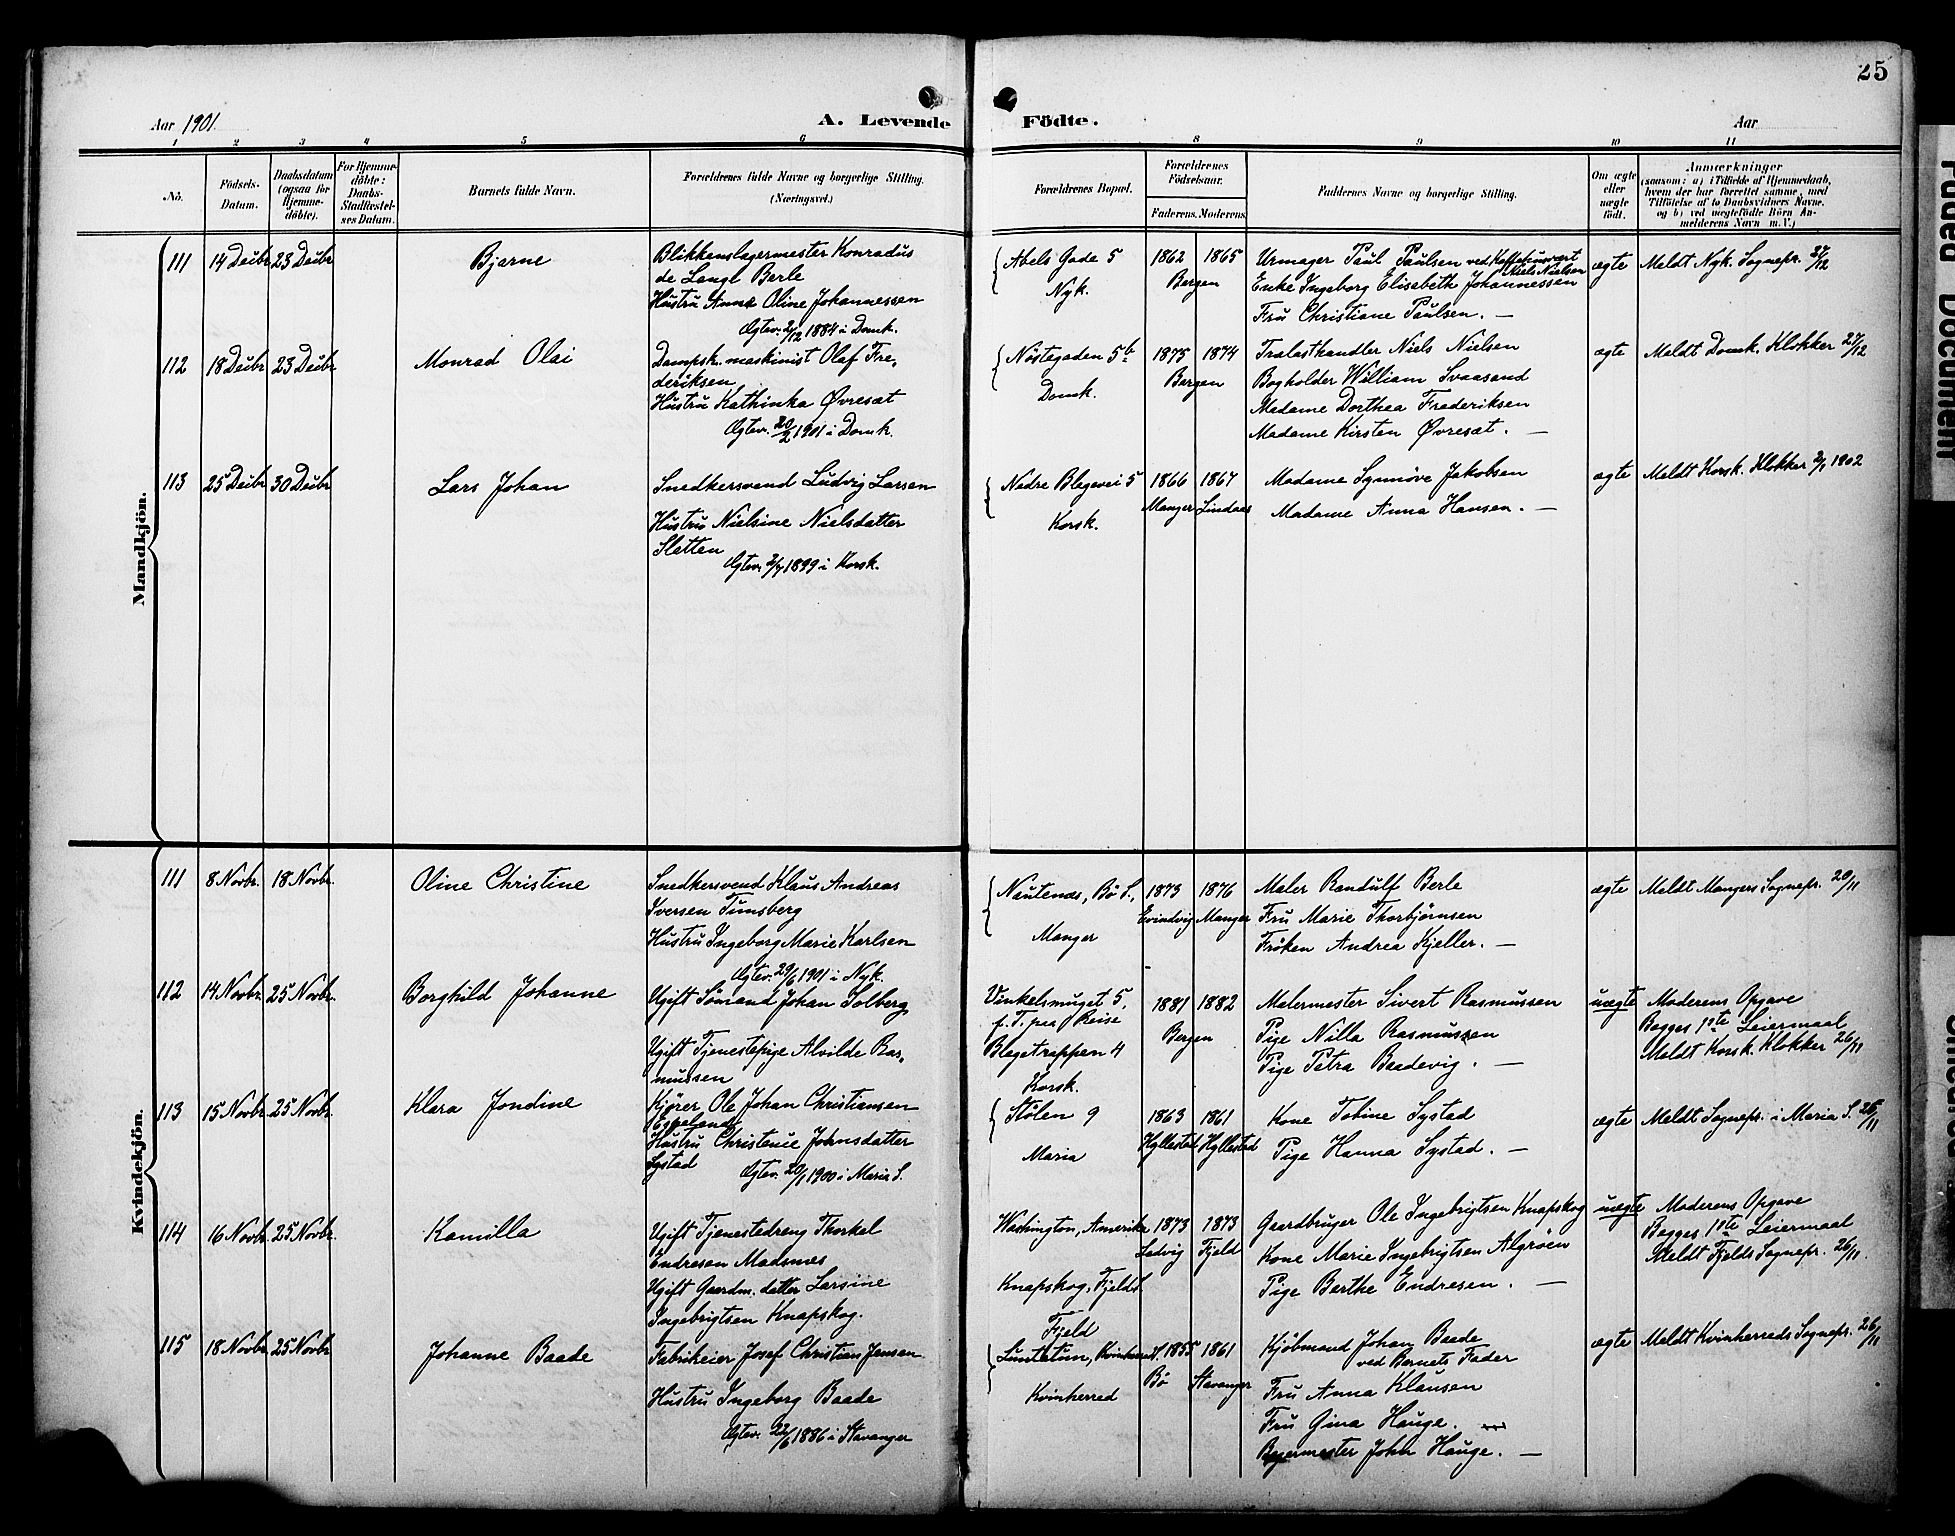 25
Aar 1901.
A. Levende Födte.
Aar
1 2 3 4 5 6 8 9 10 11
No.
Födsels-Datum.
Daabsdatum (ogsaa for Hjemme-döbte).
For Hjemme-döbte: Daabs-Stadfæstel-ses Datum.
Barnets fulde Navn.
Forældrenes fulde Navne og borgerlige Stilling.
(Næringsvei.)
Forældrenes Bopæl.
Forældrenes Födselsaar.
Faderens. Moderens.
Faddernes Navne og borgerlige Stilling.
Om ægte eller uægte födt.
Anmærkninger
(saasom: a) i Tilfælde af Hjemmedaab,
hvem der har forrettet samme, med
Tilföielse af to Daabsvidners Navne,
og b) ved uægtefödte Börn An-
melderens Navn m. V.)
Mandkjön.
111 14 Decbr. 23 Decbr.
Bjarne
Blikkenslagermester Konradus
de Langl Berle
Hustru Anna Oline Johannessen
Ægtev. 2/12 1884 i Domk.
Abels Gade 5
Nyk.
1862 1865
Bergen
Urmager Paul Paulsen ved Kaffehusvært
Niels Nielsen
Enke Ingeborg Elisebeth Johannessen
Fru Christiane Paulsen. —
ægte
Meldt Nyk. Sognepr. 27/12
112 18 Decbr. 23 Decbr.
Monrad Olai
Dampsk. maskinist Olaf Fre-
deriksen
Hustru Kathinka Øvresæt
Ægtev. 20/2 1901 i Domk.
Nöstegaden 5b
Domk.
1875 1874
Bergen
Trælasthandler Niels Nielsen
Bogholder William Svaasand
Madame Dorthea Frederiksen
Madame Kirsten Øvresæt. —
ægte
Meldt Domk. Klokker 27/12
113 25 Decbr. 30 Decbr.
Lars Johan
Snedkersvend Ludvig Larsen
Hustru Nielsine Nielsdatter
Sletten
Ægtev. 2/7 1899 i Korsk.
Nedre Blegevei 5
Korsk.
1866 1867
Manger Lindaas
Madame Synnöve Jakobsen
Madame Anna Hansen. —
ægte
Meldt Korsk. Klokker 2/1 1902
Kvindekjön.
111 8 Novbr. 18 Novbr.
Oline Christine
Snedkersvend Klaus Andreas
Iversen Tunsberg
Hustru Ingeborg Marie Karlsen
Ægtev. 29/6 1901 i Nyk.
Nautenes, Bö S.,
Manger
1873 1876
Evindvig Manger
Maler Randulf Berle
Fru Marie Thorbjörnsen
Fröken Andrea Kjeller. —
ægte
Meldt Mangers Sognepr. 20/11
112 14 Novbr. 25 Novbr.
Borghild Johanne
Ugift Sömand Johan Solberg
Ugift Tjenestepige Alvilde Ras-
mussen
Vinkelsmuget 5,
f. T. paa Reise
Blegetrappen 4
Korsk.
1881 1882
Bergen
Malermester Sivert Rasmussen
Pige Nilla Rasmussen
Pige Petra Bredevig. —
uægte
Moderens Opgave
Begges 1ste Leiermaal
Meldt Korsk. Klokker 26/11
113 15 Novbr. 25 Novbr.
Klara Jondine
Kjörer Ole Johan Christiansen
Espeland
Hustru Christense Johnsdatter
Systad
Ægtev. 20/1 1900 i Maria S.
Stölen 9
Maria
1863 1861
Hyllestad Hyllestad
Kone Tobine Systad
Pige Hanna Systad. —
ægte
Meldt Sognepr. i Maria S. 26/11
114 16 Novbr. 25 Novbr.
Kamilla
Ugift Tjenestedreng Thorkel
Endresen Madsnes
Ugift Gaardm. datter Larsine
Ingebrigtsen Knapskog.
Washington, Amerika
Knapskog, Fjelds.
Fjeld
1873 1873
Ladvig Fjeld
Gaardbruger Ole Ingebrigtsen Knapskog
Kone Marie Ingebrigtsen Algröen
Pige Berthe Endresen. —
uægte
Moderens Opgave
Begges 1ste Leiermaal
Meldt Fjelds Sognepr. 26/11.
115 18 Novbr. 25 Novbr.
Johanne Baade
Fabrikeier Josef Christian Jensen
Hustru Ingeborg Baade
Ægtev. 22/6 1886 i Stavanger
Kvinherred
1855 1861
Bö Stavanger
Kjöbmand Johan Baade
ved Barnets Fader
Fru Anna Klausen
Fru Gina Hauge.
Bagermester John Hauge. —
ægte
Meldt Kvinherreds Sognepr. 26/11
Faded Document